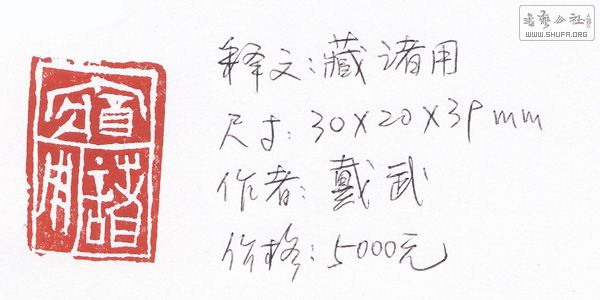 書藝公社
WWW.SHUFA.ORG
释文:藏诸用
尺寸:30X20X39mm
作者:戴武
价格:5000元